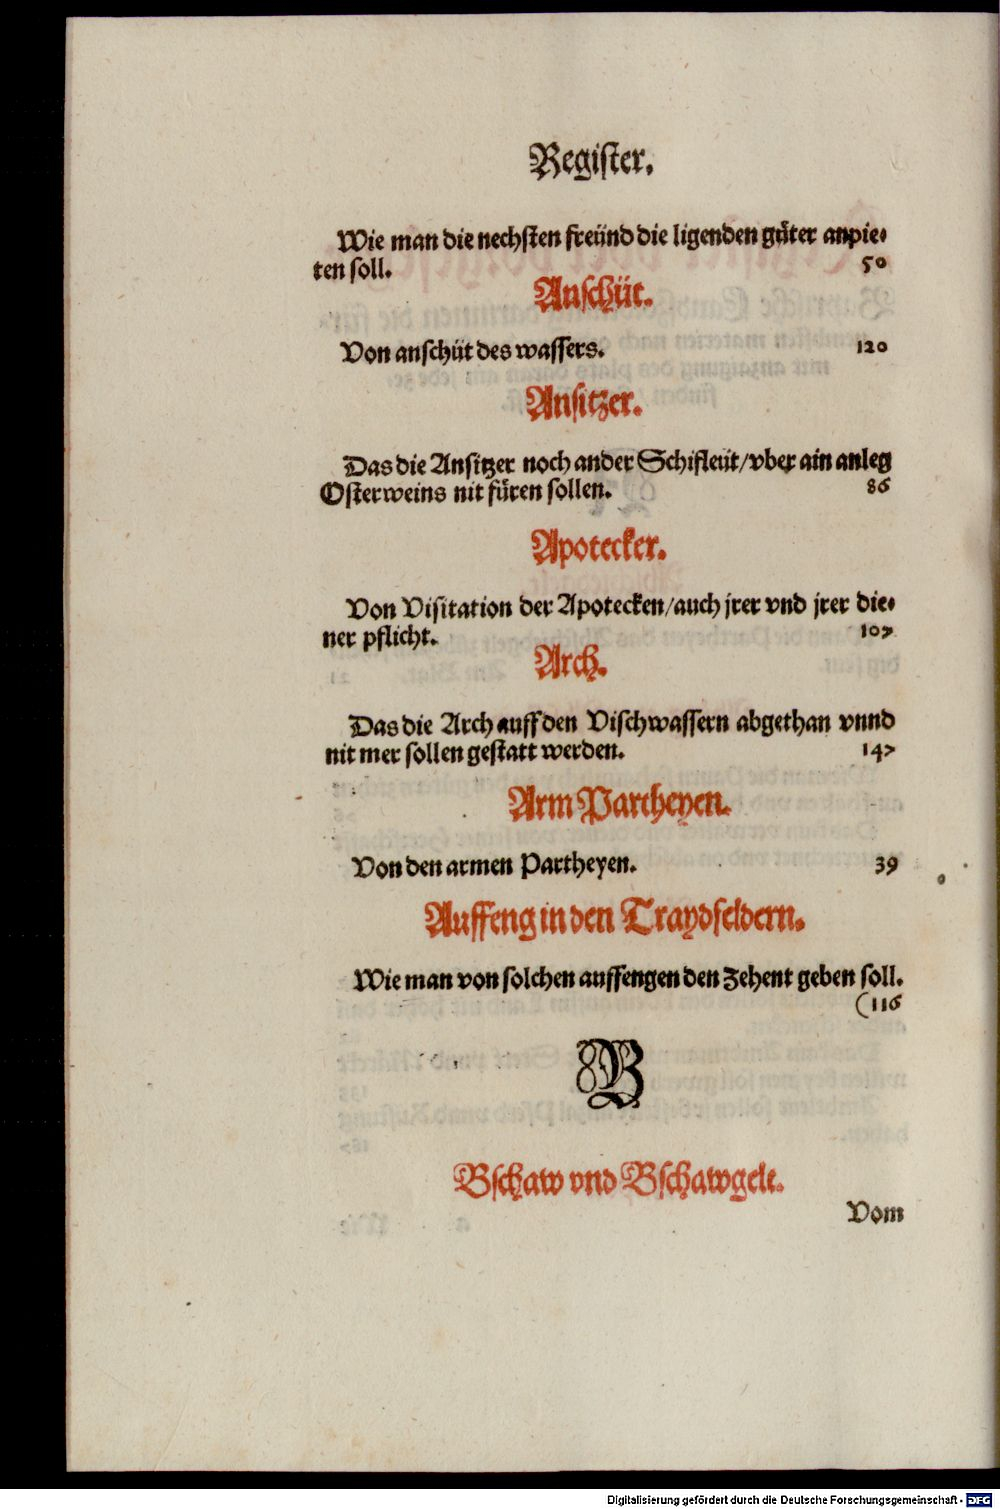 Register.
Wie man die nechsten freünd die ligenden güter anpie-
ten soll. 50
Anschüt.
Von anschüt des wassers. 120
Ansitzer.
Das die Ansitzer noch ander Schifleüt/vber ain anleg
Osterweins nit füren sollen. 86
Apotecker.
Von Visitation der Apotecken/auch jrer vnd jrer die-
ner pflicht. 107
Arch.
Das die Arch auff den Vischwassern abgethan vnnd
nit mer sollen gestatt werden. 147
Arm Partheyen.
Von den armen Partheyen. 39
Auffeng in den Traydfeldern.
Wie man von solchen auffengen den zehent geben soll.
(116
B
Bschaw vnd Bschawgelt.
Vom
Digitalisierung gefördert durch die Deutsche Forschungsgemeinschaft - DFG